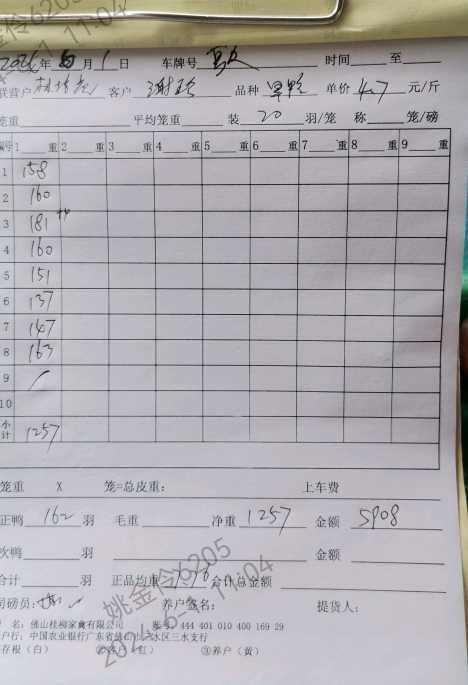 姚金伶6205
11:04
年 月 1 日 车牌号 时间 至
联营户 客户 谢 品种 单价 4.7 元/斤
笼重 平均笼重 装 20 羽/笼 称 笼/磅
编号 1 重 2 重 3 重 4 重 5 重 6 重 7 重 8 重 9 重
1 158
2 160
3 181
4 160
5 151
6 137
7 147
8 163
9
10
小计 1257
笼重 X 笼=总皮重: 上车费
正鸭 162 羽 毛重 净重 1257 金额 5908
次鸭 羽 金额
合计 羽 正品均重 7.76 合计总金额
司磅员: 养户签名: 提货人:
名: 佛山桂柳家禽有限公司 账号: 444 401 010 400 169 29
户行: 中国农业银行广东省佛山 水区三水支行
存根（白） ②客户（红） ③养户（黄）
姚金伶6205
11:04